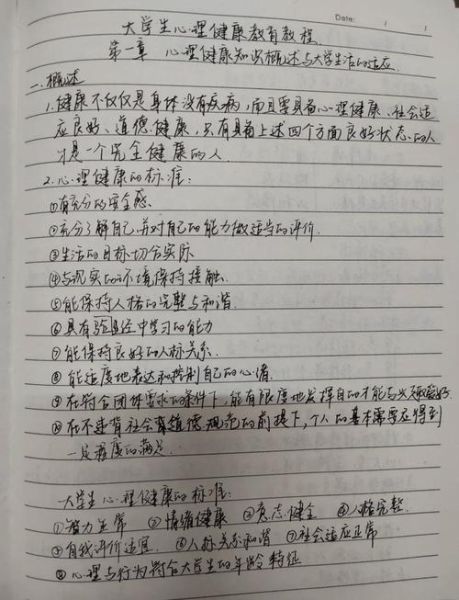 Date: / /
大学生心理健康教育教程
第一章 心理健康知识概述与大学生活的适应
一、概述
1.健康不仅仅是身体没有疾病,而且要具备心理健康、社会适
应良好、道德健康,只有具备上述四个方面良好状态的人
才是一个完全健康的人.
2.心理健康的标准:
①有充分的安全感.
②充分了解自己,并对自己的能力做适当的评价.
③生活的目标切合实际
④与现实的环境保持接触.
⑤能保持人格的完整与和谐.
⑥具有从经验中学习的能力
⑦能保持良好的人际关系.
⑧能适度地表达和控制自己的心情.
⑨在符合团体要求的条件下,能有限度地发挥自己的才能与兴趣爱好.
⑩在不违背社会道德规范的前提下,个人的基本需要应得到
一定程度的满足.
大学生心理健康的标准:
①智力正常 ②情绪健康 ③意志健全 ④人格完整.
⑤自我评价适宜 ⑥人际关系和谐 ⑦社会适应正常
⑧心理与行为符合大学生的年龄特征